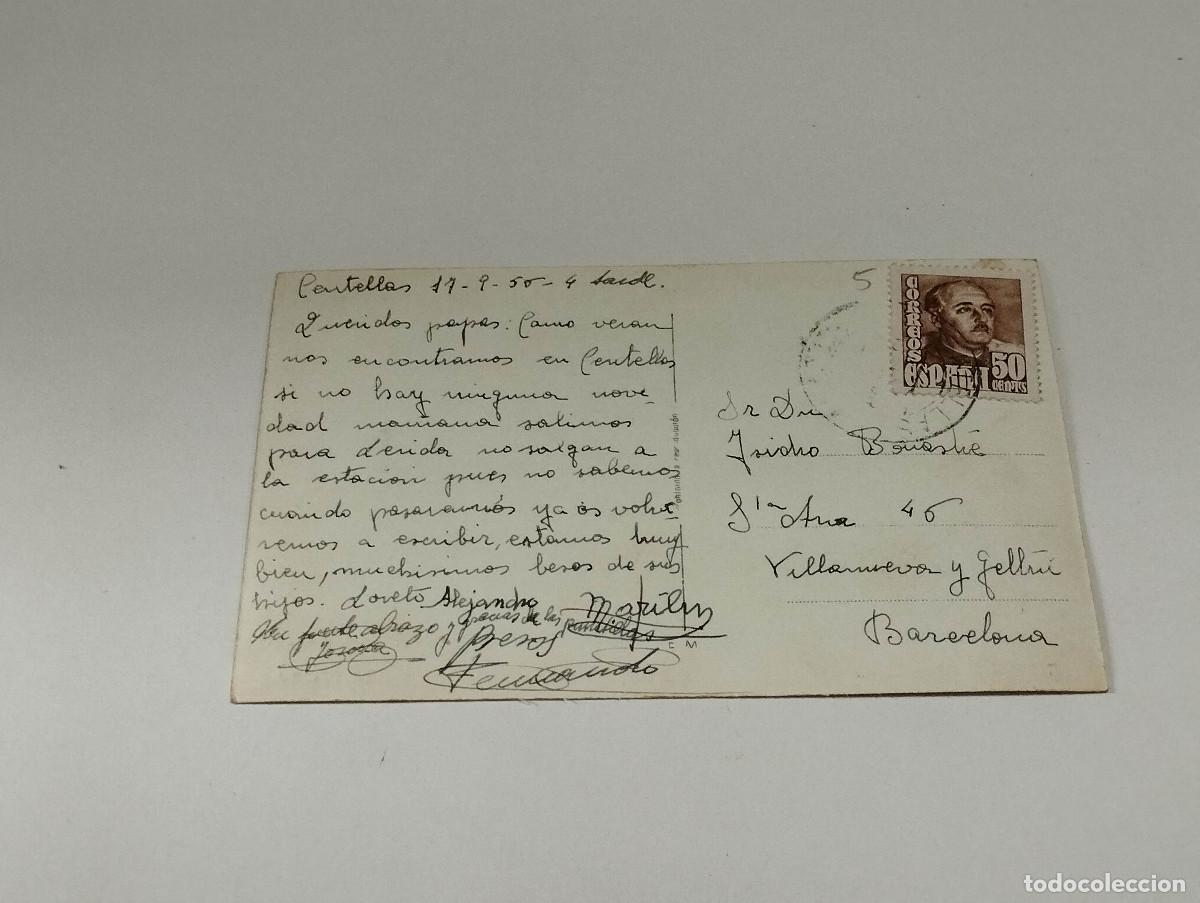 Centellas 17-9-50-4 tarde.
Queridos papas: Como veran
nos encontramos en Centellas
si no hay ninguna nove-
dad mañana salimos
para Lerida no salgan a
la estacion pues no sabemos
cuando pasaremos ya os volve
remos a escribir, estamos muy
bien, muchisimos besos de sus
hijos. Loreto Alejandro Marilin
Un fuerte abrazo y gracias de las
besos
Fernando
C M
5
CORREOS
ESPAÑA
50
CENTS
Sr Dn
Isidro
Sta Ana 46
Villanueva y Geltrú
Barcelona
todocoleccion